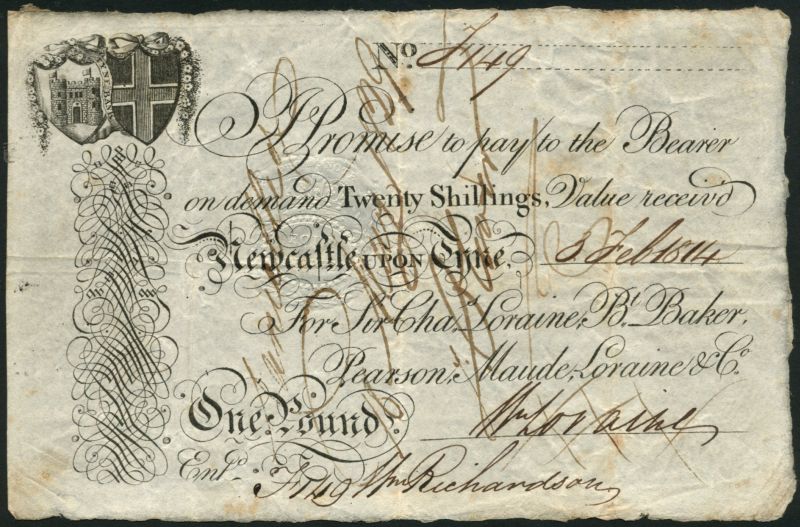 No. F149
I Promise to pay to the Bearer
on demand Twenty Shillings, Value receiv'd
Newcastle UPON Tyne, 5 Feb 1814
For Sir Cha.s Loraine, B.t Baker,
Pearson, Maude, Loraine & Co.
One Pound. Wm Loraine
Ent.d F149 Wm Richardson